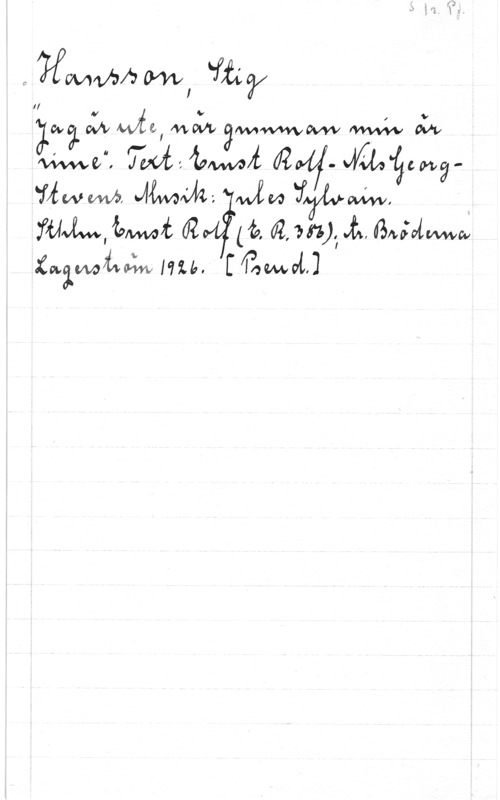 S Tr. Pf.
Hansson, Stig
"Jag är ute, när gumman min är
inne". Text: Ernst Rolf-Nils Georg-
Stevens. Musik: Jules Sylvain.
Sthlm, Ernst Rolf (E. R. 382); tr. Bröderna
Lagerström 1926. [Pseud.]